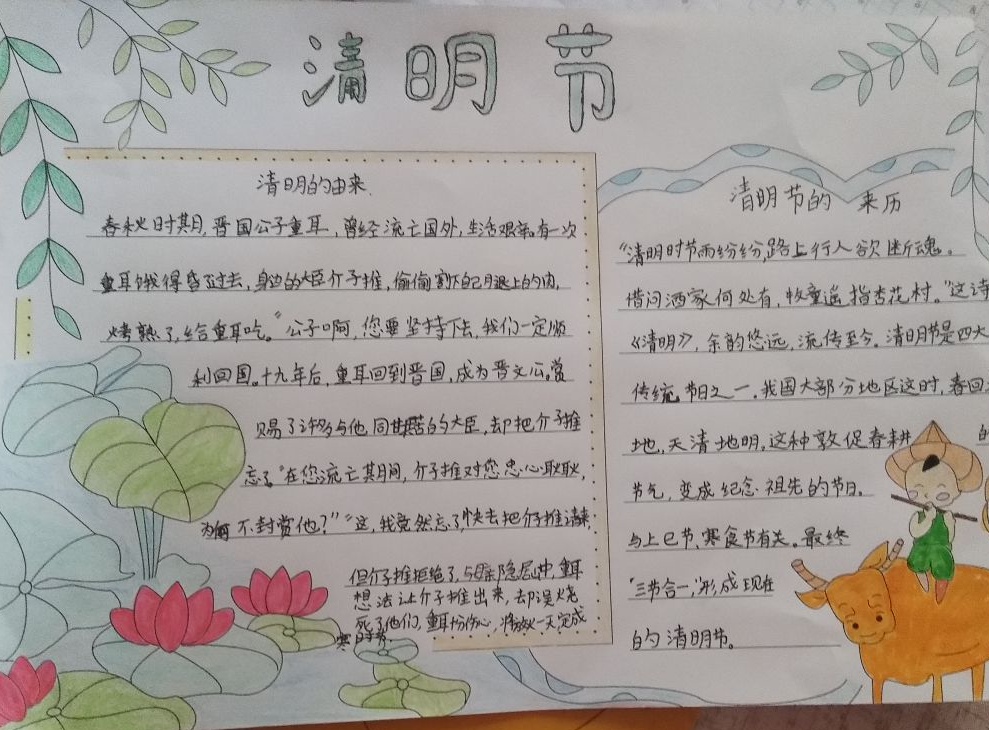 清明节
清明的由来.
春秋时期,晋国公子重耳,曾经流亡国外,生活艰辛。有一次
重耳饿得昏了过去,身边的大臣介子推,偷偷割下自己腿上的肉,
烤熟了,给重耳吃。“公子啊,您要坚持下去,我们一定顺
利回国。十九年后,重耳回到晋国,成为晋文公。赏
赐了许多与他同甘共苦的大臣,却把介子推
忘了“在您流亡其间,介子推对您忠心耿耿,
为何不封赏他?”“这,我竟然忘了,快去把介子推请来,
但介子推拒绝了,与母亲隐居山中,重耳
想法让介子推出来,却误烧
死了他们,重耳份伤心,将放火一天定成
寒食节.
清明节的 来历
“清明时节雨纷纷,路上行人欲断魂。
借问酒家何处有,牧童遥指杏花村。”这诗
《清明》,余韵悠远,流传至今。清明节是四大
传统节日之一,我国大部分地区这时,春回大
地,天清地明,这种敦促春耕 的
节气,变成纪念祖先的节日。
与上巳节、寒食节有关。最终
“三节合一”,形成现在
的清明节。